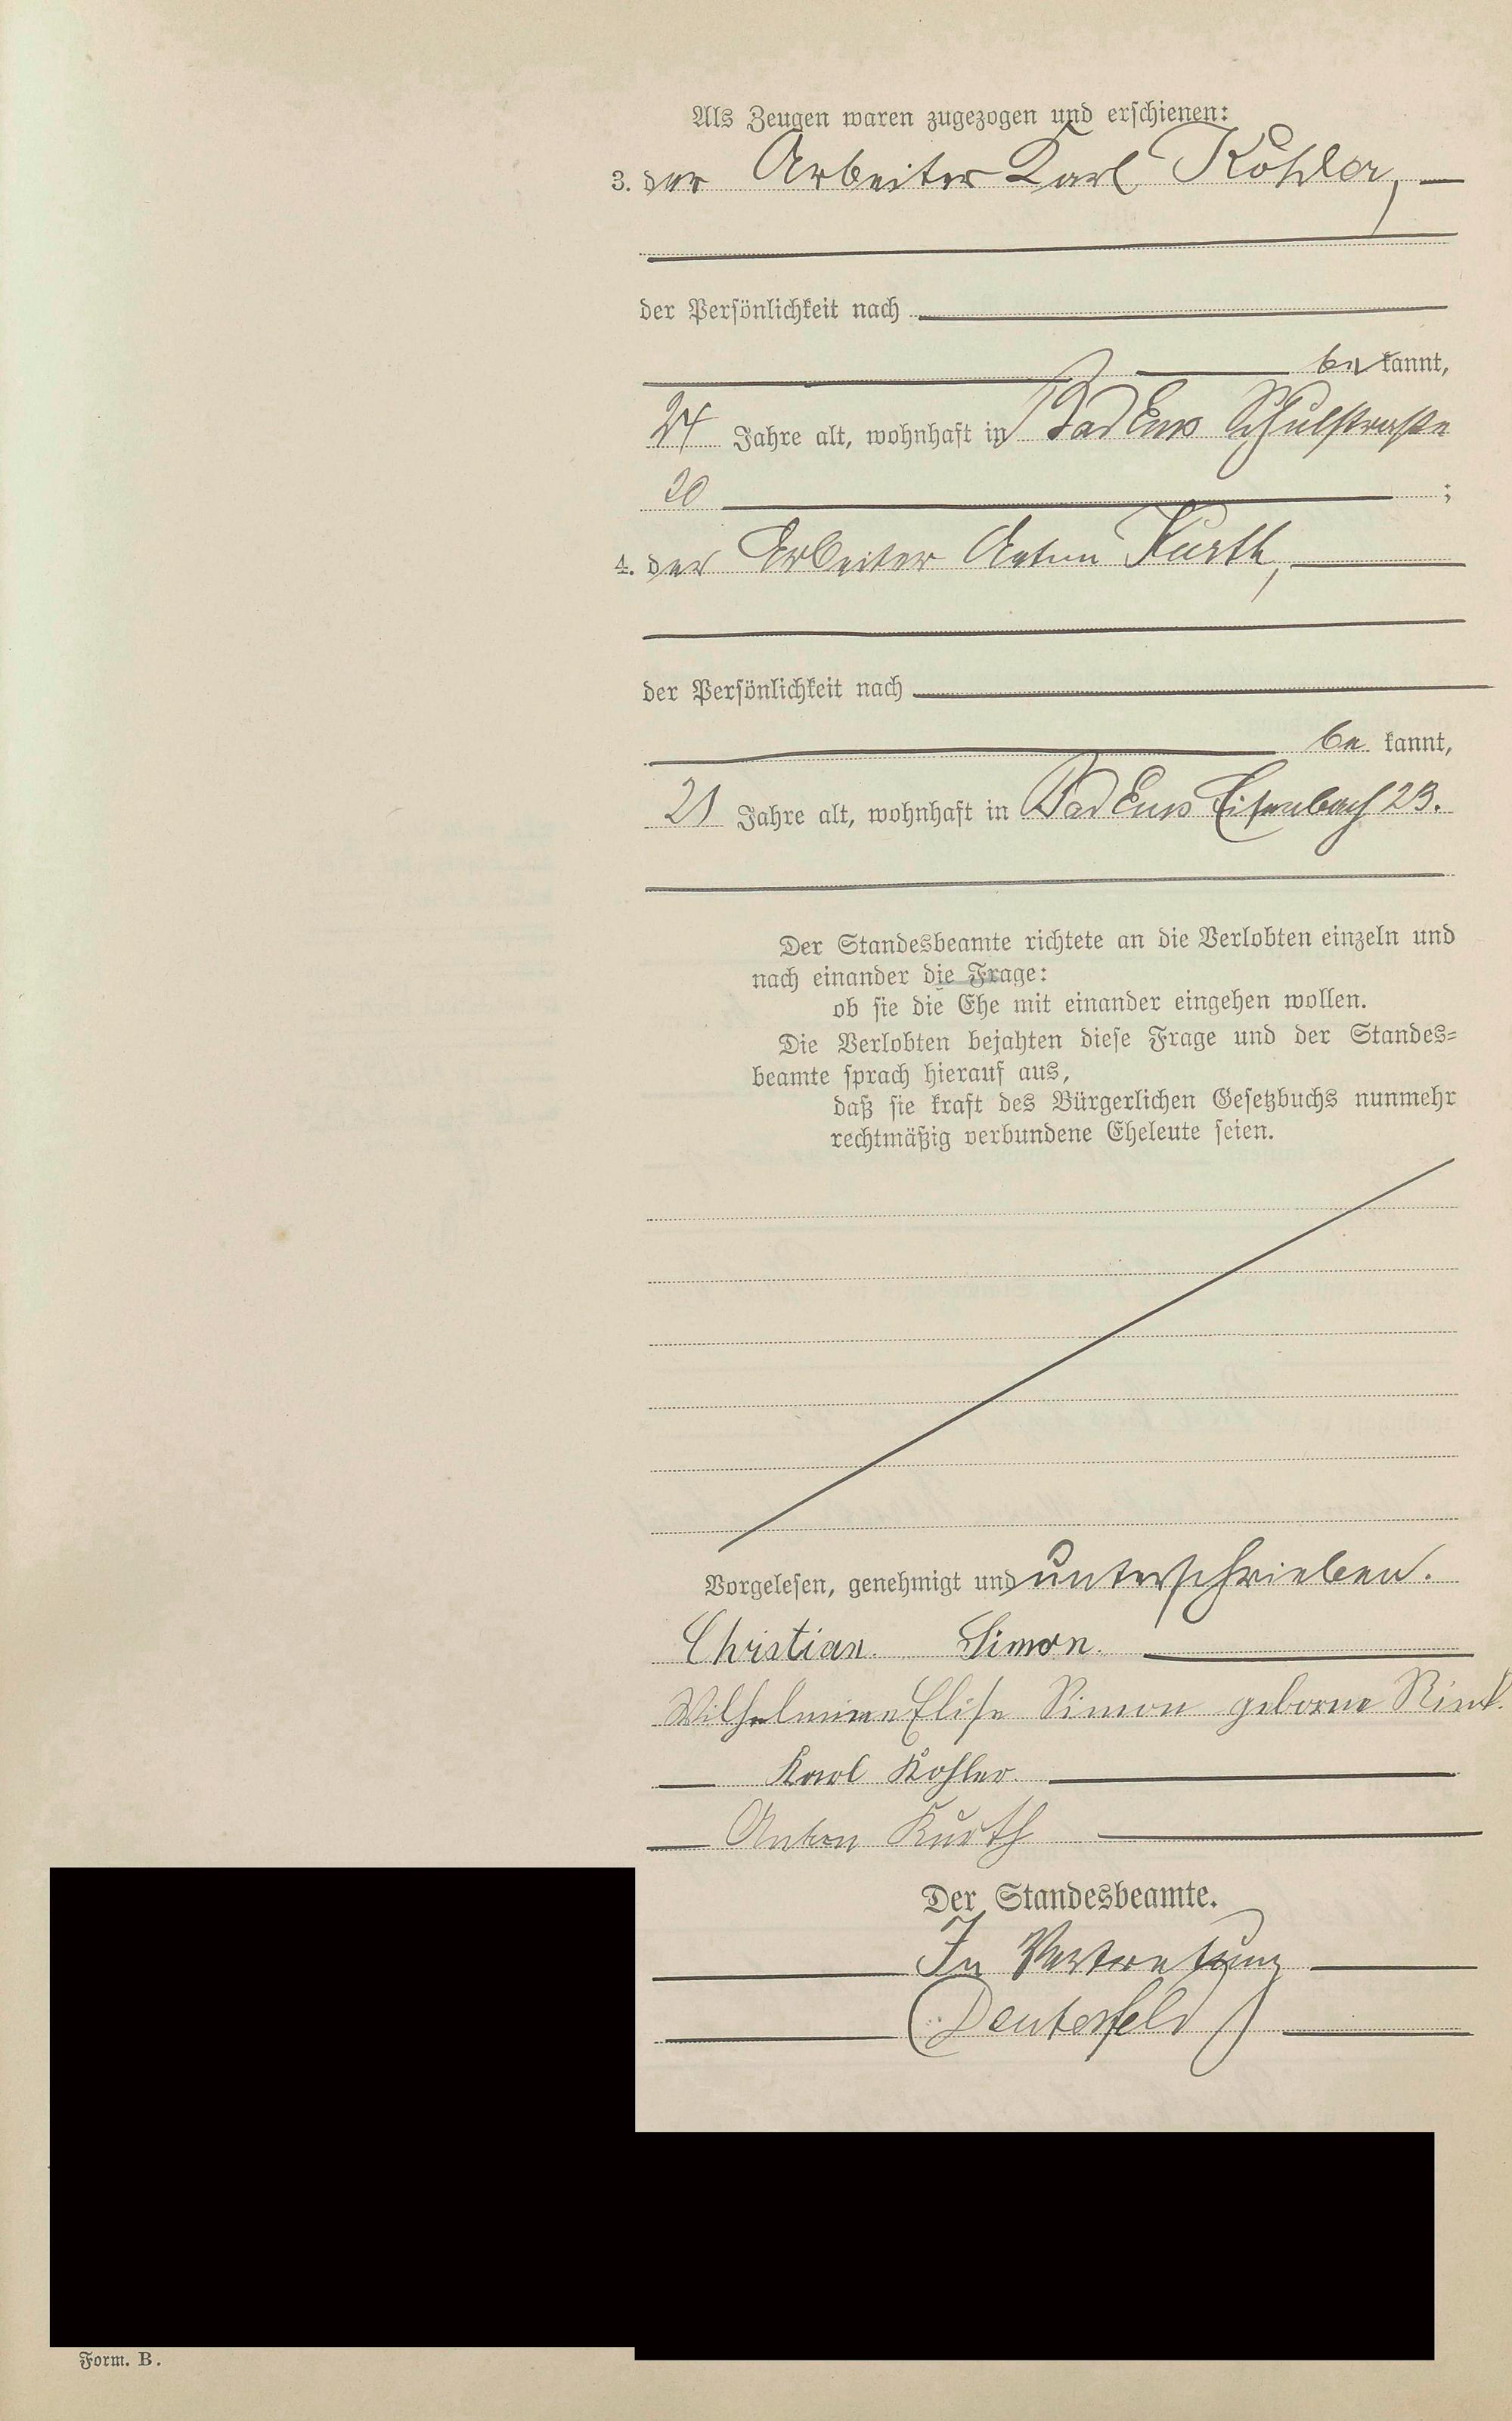 Als Zeugen waren zugezogen und erschienen:
3. der Arbeiter Karl Köhler,
der Persönlichkeit nach
be kannt,
24 Jahre alt, wohnhaft in Bad Ems Schulstraße
20 ;
4. der Arbeiter Anton Kurth,
der Persönlichkeit nach
be kannt,
21 Jahre alt, wohnhaft in Bad Ems Eisenbach 23.
Der Standesbeamte richtete an die Verlobten einzeln und
nach einander die Frage:
ob sie die Ehe mit einander eingehen wollen.
Die Verlobten bejahten diese Frage und der Standes-
beamte sprach hierauf aus,
daß sie kraft des Bürgerlichen Gesetzbuchs nunmehr
rechtmäßig verbundene Eheleute seien.
Vorgelesen, genehmigt und unterschrieben.
Christian Simon.
Wilhelmine Elise Simon geborne
Karl Köhler
Anton Kurth
Der Standesbeamte.
In Vertretung
Form. B.